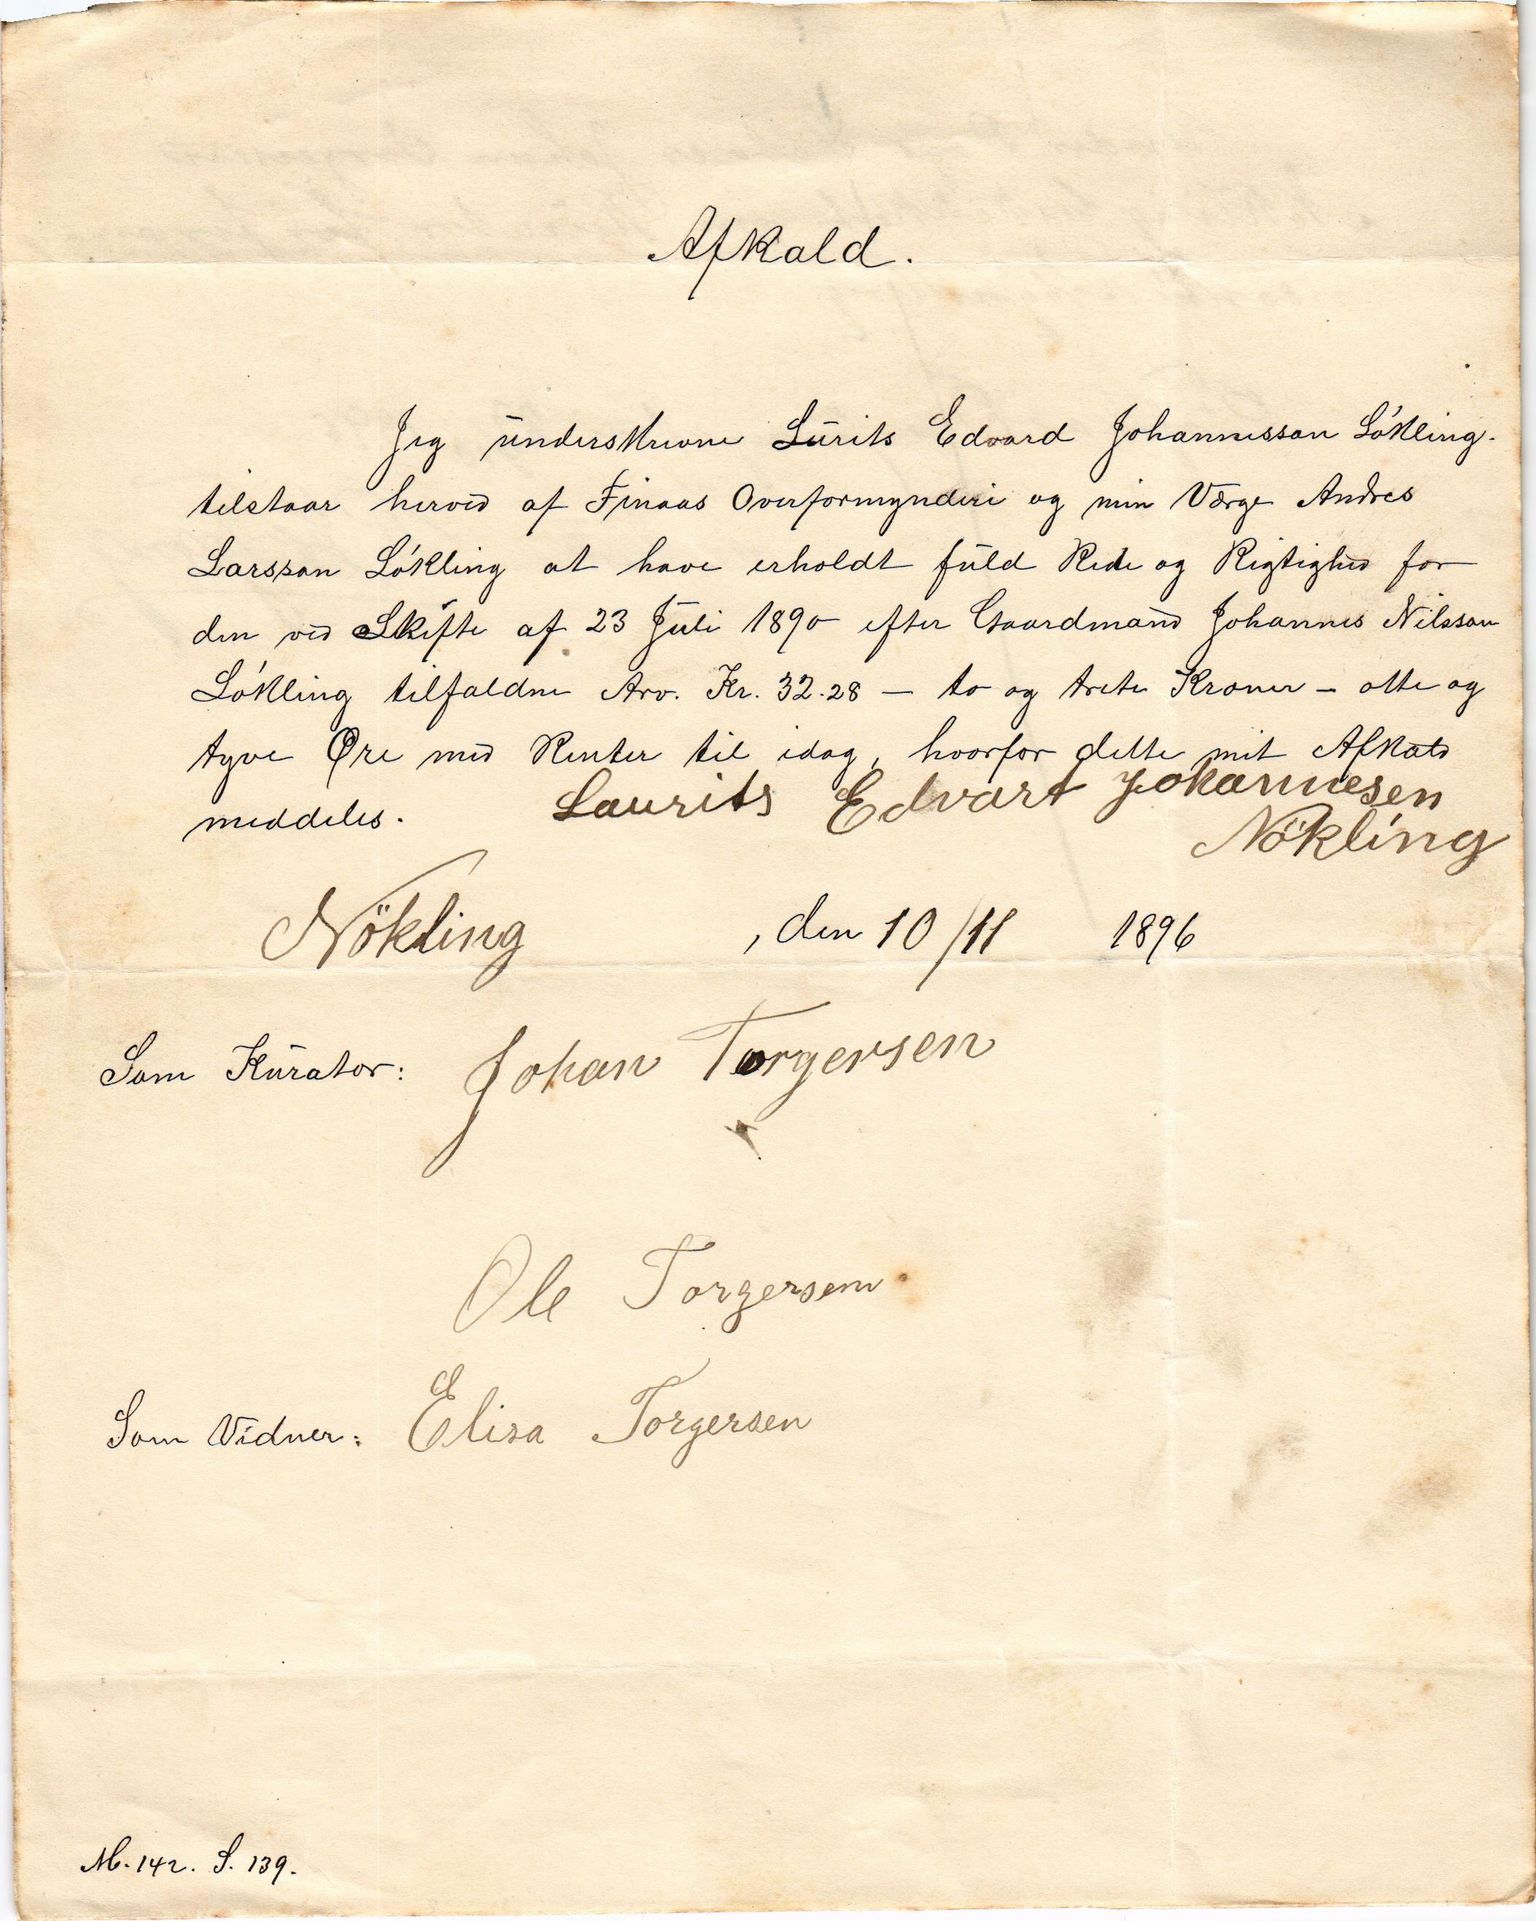 Afkald.
Jeg underskrevne Lurits Edvard Johannesson Lökling
tilstaar herved af Finaas Overformynderi og min Værge Andres
Larsson Lökling at have erholdt fuld Rede og Rigtighed for
den ved Skifte af 23 Juli 1890 efter Gaardmand Johannes Nilsson
Lökling tilfaldne Arv. Kr. 32.28 – to og trete Kroner – otte og
tyve Øre med Renter til idag, hvorfor dette mit Afkald
meddeles. Laurits Edvart Johannesen
Nökling
Nökling, den 10/11 1896
Som Kurator: Johan Torgersen
Ole Torgersen
Som Vidner: Elisa Torgersen
M. 142. S. 139.